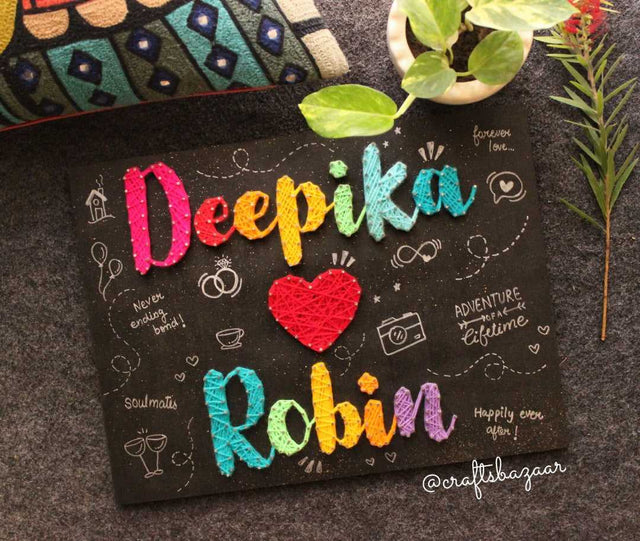 forever
love...
Deepika
Never
ending
bond!
ADVENTURE
OF A
lifetime
Robin
Soulmates
Happily ever
after!
@craftsbazaar